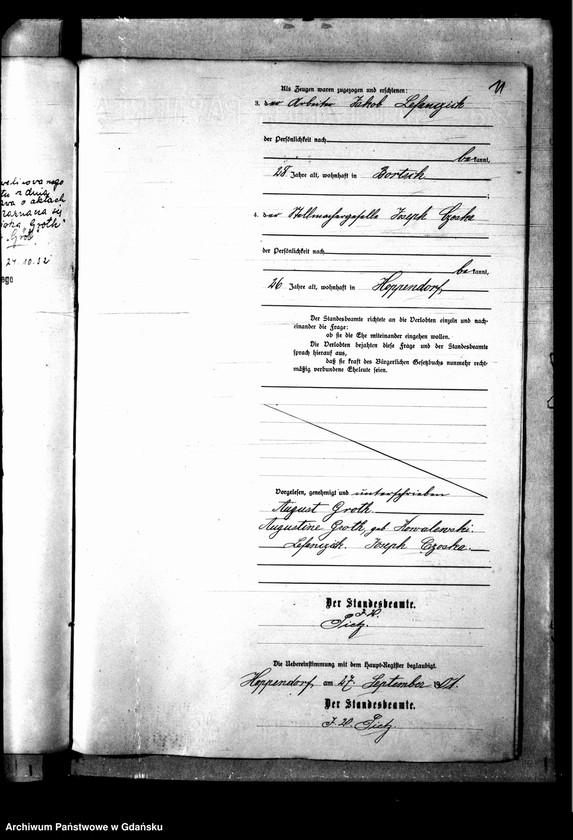 11
Als Zeugen waren zugezogen und erschienen:
3. der Arbeiter Jakob
der Persönlichkeit nach
bekannt,
28 Jahre alt, wohnhaft in Bortsch
;
4. der Stellmachergeselle Joseph Czoska
der Persönlichkeit nach
bekannt,
26 Jahre alt, wohnhaft in Hoppendorf
Der Standesbeamte richtete an die Verlobten einzeln und nach-
einander die Frage:
ob sie die Ehe miteinander eingehen wollen.
Die Verlobten bejahten diese Frage und der Standesbeamte
sprach hierauf aus,
daß sie kraft des Bürgerlichen Gesetzbuchs nunmehr recht-
mäßig verbundene Eheleute seien.
Vorgelesen, genehmigt und unterschrieben
August Groth
Augustine Groth, geb Kowalewski.
Joseph Czoska.
Der Standesbeamte.
J. V.
Die Uebereinstimmung mit dem Haupt-Register beglaubigt.
Hoppendorf, am 27. September
Der Standesbeamte.
J. V.
z dnia
o aktach
się
Groth"
Grot
24.10.52
Archiwum Państwowe w Gdańsku